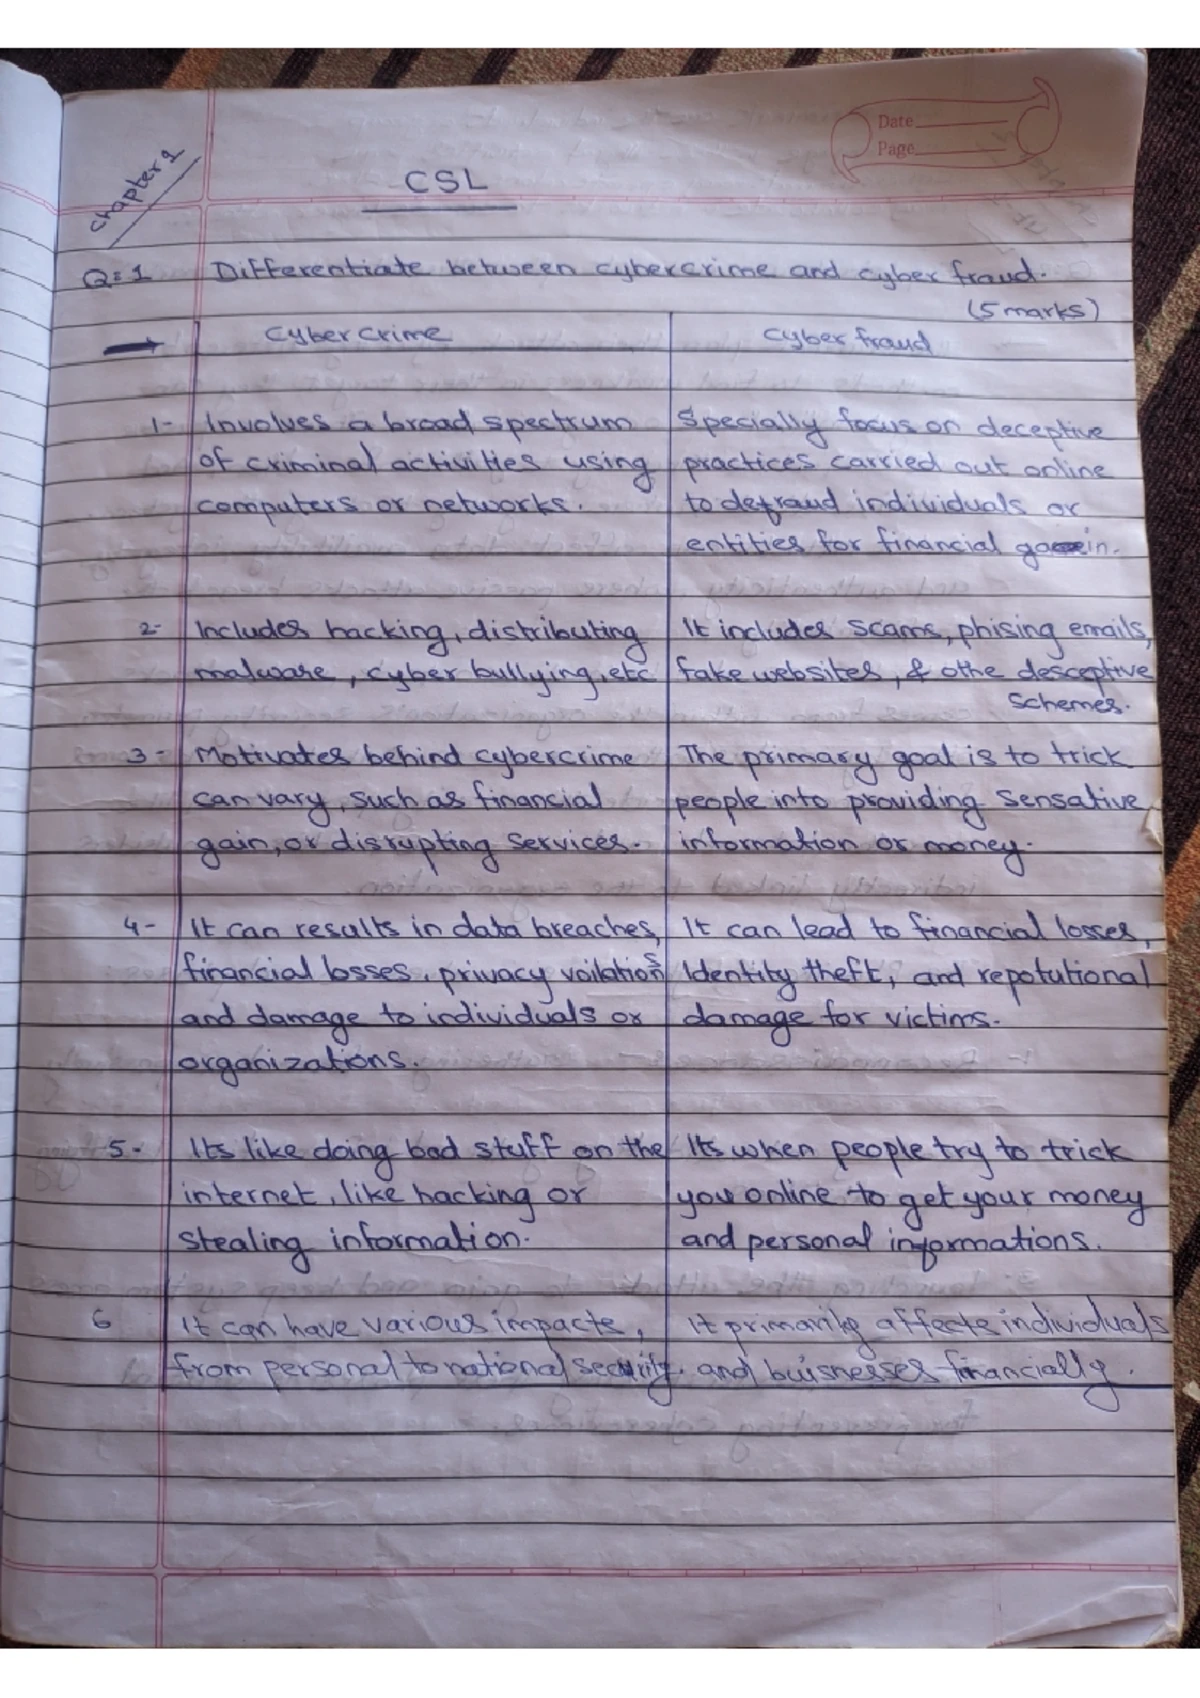 Date
Page
Chapter 1
CSL
Q=1 Differentiate between cybercrime and cyber fraud.
(5 marks)
Cyber crime Cyber fraud
1- Involves a broad spectrum Specially focus on deceptive
of criminal activities using practices carried out online
computers or networks. to defraud individuals or
entities for financial gain.
2- Includes hacking, distributing It includes scams, phising emails,
malware, cyber bullying, etc fake websites, & othe desceptive
schemes.
3- Motivates behind cybercrime The primary goal is to trick
can vary, such as financial people into providing sensative
gain, or disrupting services. information or money.
4- It can results in data breaches, It can lead to financial losses,
financial losses, privacy voilations Identity theft, and repututional
and damage to individuals or damage for victims.
organizations.
5- Its like doing bad stuff on the Its when people try to trick
internet, like hacking or you online to get your money
stealing information. and personal informations.
6 It can have various impacts, it primarily affects individuals
from personal to national security. and buisnesses financially.